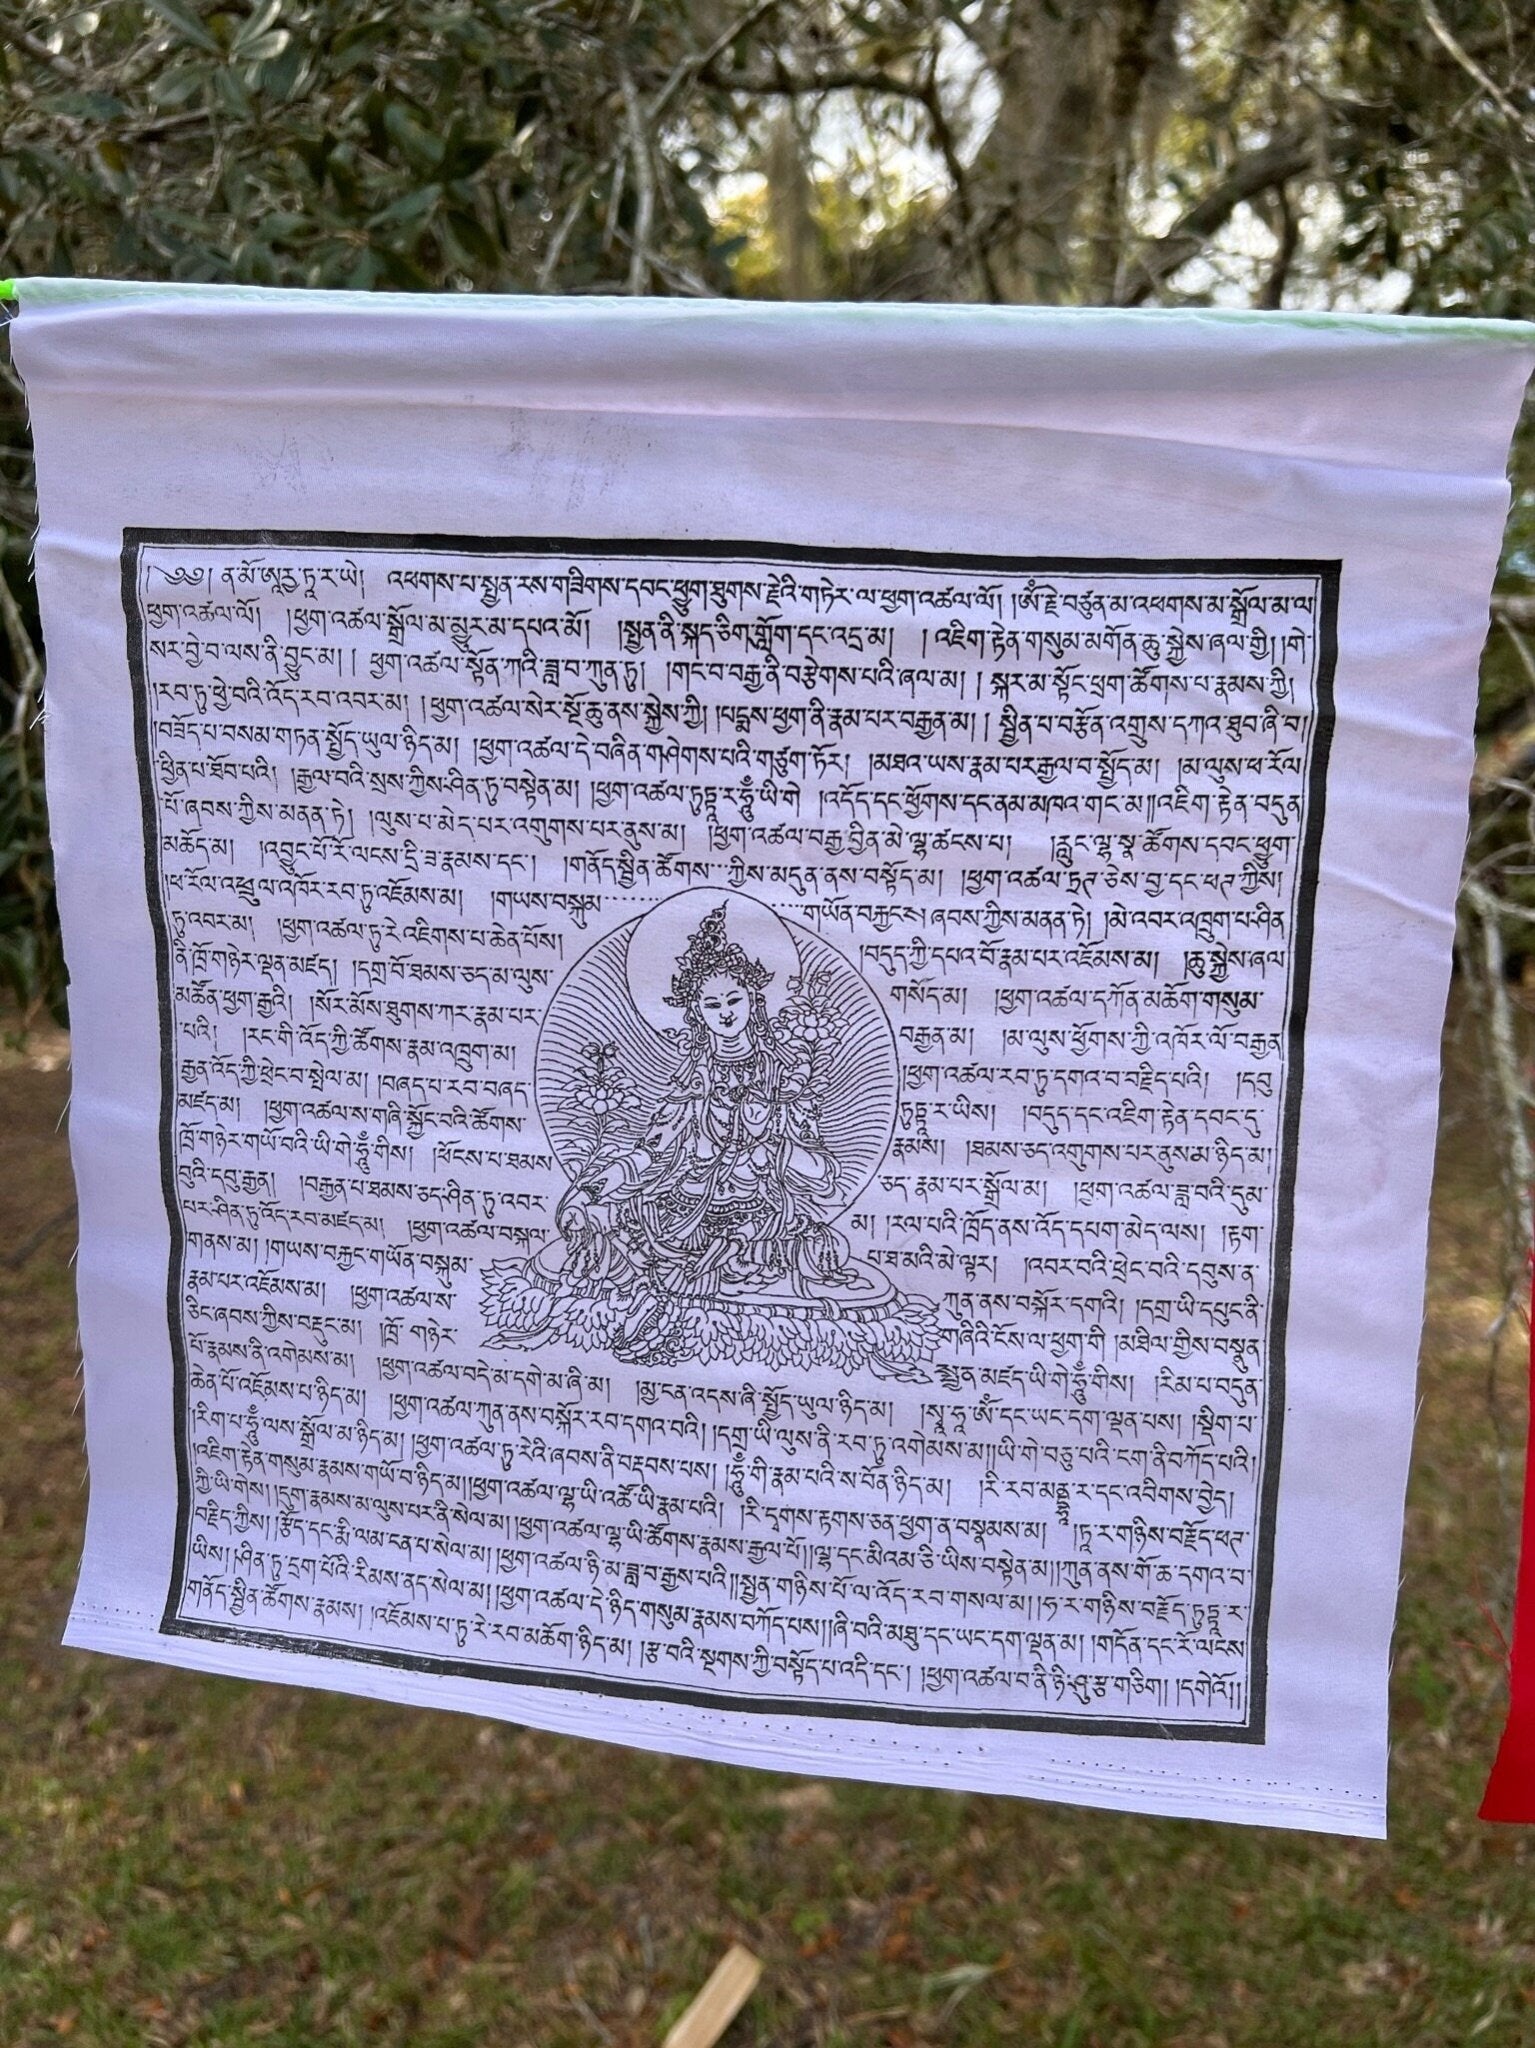 ། ༄༅། ན་མོ་ཨཱརྱ་ཏཱ་ར་ཡེ། འཕགས་པ་སྤྱན་རས་གཟིགས་དབང་ཕྱུག་ཐུགས་རྗེའི་གཏེར་ལ་ཕྱག་འཚལ་ལོ། །ཨོཾ་རྗེ་བཙུན་མ་འཕགས་མ་སྒྲོལ་མ་ལ་
ཕྱག་འཚལ་ལོ། །ཕྱག་འཚལ་སྒྲོལ་མ་མྱུར་མ་དཔའ་མོ། །སྤྱན་ནི་སྐད་ཅིག་གློག་དང་འདྲ་མ། །འཇིག་རྟེན་གསུམ་མགོན་ཆུ་སྐྱེས་ཞལ་གྱི། །གེ་
སར་བྱེ་བ་ལས་ནི་བྱུང་མ། །ཕྱག་འཚལ་སྟོན་ཀའི་ཟླ་བ་ཀུན་ཏུ། །གང་བ་བརྒྱ་ནི་བརྩེགས་པའི་ཞལ་མ། །སྐར་མ་སྟོང་ཕྲག་ཚོགས་པ་རྣམས་ཀྱི།
།རབ་ཏུ་ཕྱེ་བའི་འོད་རབ་འབར་མ། །ཕྱག་འཚལ་སེར་སྔོ་ཆུ་ནས་སྐྱེས་ཀྱི། །པདྨས་ཕྱག་ནི་རྣམ་པར་བརྒྱན་མ། །སྦྱིན་པ་བརྩོན་འགྲུས་དཀའ་ཐུབ་ཞི་བ།
།བཟོད་པ་བསམ་གཏན་སྤྱོད་ཡུལ་ཉིད་མ། །ཕྱག་འཚལ་དེ་བཞིན་གཤེགས་པའི་གཙུག་ཏོར། །མཐའ་ཡས་རྣམ་པར་རྒྱལ་བ་སྤྱོད་མ། །མ་ལུས་ཕ་རོལ་
ཕྱིན་པ་ཐོབ་པའི། །རྒྱལ་བའི་སྲས་ཀྱིས་ཤིན་ཏུ་བསྟེན་མ། །ཕྱག་འཚལ་ཏུཏྟཱ་ར་ཧཱུྃ་ཡི་གེ །འདོད་དང་ཕྱོགས་དང་ནམ་མཁའ་གང་མ། །འཇིག་རྟེན་བདུན་
པོ་ཞབས་ཀྱིས་མནན་ཏེ། །ལུས་པ་མེད་པར་འགུགས་པར་ནུས་མ། །ཕྱག་འཚལ་བརྒྱ་བྱིན་མེ་ལྷ་ཚངས་པ། །རླུང་ལྷ་སྣ་ཚོགས་དབང་ཕྱུག་
མཆོད་མ། །འབྱུང་པོ་རོ་ལངས་དྲི་ཟ་རྣམས་དང་། །གནོད་སྦྱིན་ཚོགས་ཀྱིས་མདུན་ནས་བསྟོད་མ། །ཕྱག་འཚལ་ཏྲཊ་ཅེས་བྱ་དང་ཕཊ་ཀྱིས།
།ཕ་རོལ་འཕྲུལ་འཁོར་རབ་ཏུ་འཇོམས་མ། །གཡས་བསྐུམ་གཡོན་བརྐྱང་ས།ཞབས་ཀྱིས་མནན་ཏེ། །མེ་འབར་འཁྲུག་པ་ཤིན་
ཏུ་འབར་མ། །ཕྱག་འཚལ་ཏུ་རེ་འཇིགས་པ་ཆེན་པོས། །བདུད་ཀྱི་དཔའ་བོ་རྣམ་པར་འཇོམས་མ། །ཆུ་སྐྱེས་ཞལ་
ནི་ཁྲོ་གཉེར་ལྡན་མཛད། །དགྲ་བོ་ཐམས་ཅད་མ་ལུས་གསོད་མ། །ཕྱག་འཚལ་དཀོན་མཆོག་གསུམ་
མཚོན་ཕྱག་རྒྱའི། །སོར་མོས་ཐུགས་ཀར་རྣམ་པར་བརྒྱན་མ། །མ་ལུས་ཕྱོགས་ཀྱི་འཁོར་ལོ་བརྒྱན་
པའི། །རང་གི་འོད་ཀྱི་ཚོགས་རྣམ་འཁྲུག་མ། །ཕྱག་འཚལ་རབ་ཏུ་དགའ་བ་བརྗིད་པའི། །དབུ་
རྒྱན་འོད་ཀྱི་ཕྲེང་བ་སྤེལ་མ། །བཞད་པ་རབ་བཞད་ཏུཏྟཱ་ར་ཡིས། །བདུད་དང་འཇིག་རྟེན་དབང་དུ་
མཛད་མ། །ཕྱག་འཚལ་ས་གཞི་སྐྱོང་བའི་ཚོགས་རྣམས། །ཐམས་ཅད་འགུགས་པར་ནུས་མ་ཉིད་མ།
ཁྲོ་གཉེར་གཡོ་བའི་ཡི་གེ་ཧཱུྃ་གིས། །ཕོངས་པ་ཐམས་ཅད་རྣམ་པར་སྒྲོལ་མ། །ཕྱག་འཚལ་ཟླ་བའི་དུམ་
བུའི་དབུ་རྒྱན། །བརྒྱན་པ་ཐམས་ཅད་ཤིན་ཏུ་འབར་མ། །རལ་པའི་ཁྲོད་ནས་འོད་དཔག་མེད་ལས། །རྟག་
པར་ཤིན་ཏུ་འོད་རབ་མཛད་མ། །ཕྱག་འཚལ་བསྐལ་པ་ཐ་མའི་མེ་ལྟར། །འབར་བའི་ཕྲེང་བའི་དབུས་ན་
གནས་མ། །གཡས་བརྐྱང་གཡོན་བསྐུམ་ཀུན་ནས་བསྐོར་དགའི། །དགྲ་ཡི་དཔུང་ནི་
རྣམ་པར་འཇོམས་མ། །ཕྱག་འཚལ་ས་གཞིའི་ངོས་ལ་ཕྱག་གི །མཐིལ་གྱིས་བསྣུན་
ཅིང་ཞབས་ཀྱིས་བརྡུང་མ། །ཁྲོ་གཉེར་སྤྱན་མཛད་ཡི་གེ་ཧཱུྃ་གིས། །རིམ་པ་བདུན་
པོ་རྣམས་ནི་འགེམས་མ། །ཕྱག་འཚལ་བདེ་མ་དགེ་མ་ཞི་མ། །མྱ་ངན་འདས་ཞི་སྤྱོད་ཡུལ་ཉིད་མ། །སྭཱ་ཧཱ་ཨོཾ་དང་ཡང་དག་ལྡན་པས། །སྡིག་པ་
ཆེན་པོ་འཇོམས་པ་ཉིད་མ། །ཕྱག་འཚལ་ཀུན་ནས་བསྐོར་རབ་དགའ་བའི། །དགྲ་ཡི་ལུས་ནི་རབ་ཏུ་འགེམས་མ། །ཡི་གེ་བཅུ་པའི་ངག་ནི་བཀོད་པའི།
།རིག་པ་ཧཱུྃ་ལས་སྒྲོལ་མ་ཉིད་མ། །ཕྱག་འཚལ་ཏུ་རེའི་ཞབས་ནི་བརྡབས་པས། །ཧཱུྃ་གི་རྣམ་པའི་ས་བོན་ཉིད་མ། །རི་རབ་མནྡྷཱ་ར་དང་འབིགས་བྱེད།
།འཇིག་རྟེན་གསུམ་རྣམས་གཡོ་བ་ཉིད་མ། །ཕྱག་འཚལ་ལྷ་ཡི་མཚོ་ཡི་རྣམ་པའི། །རི་དྭགས་རྟགས་ཅན་ཕྱག་ན་བསྣམས་མ། །ཏཱ་ར་གཉིས་བརྗོད་ཕཊ་
ཀྱི་ཡི་གེས། །དུག་རྣམས་མ་ལུས་པར་ནི་སེལ་མ། །ཕྱག་འཚལ་ལྷ་ཡི་ཚོགས་རྣམས་རྒྱལ་པོ། །ལྷ་དང་མིའམ་ཅི་ཡིས་བསྟེན་མ། །ཀུན་ནས་གོ་ཆ་དགའ་བ་
བརྗིད་ཀྱིས། །རྩོད་དང་རྨི་ལམ་ངན་པ་སེལ་མ། །ཕྱག་འཚལ་ཉི་མ་ཟླ་བ་རྒྱས་པའི། །སྤྱན་གཉིས་པོ་ལ་འོད་རབ་གསལ་མ། །ཧ་ར་གཉིས་བརྗོད་ཏུཏྟཱ་ར་
ཡིས། །ཤིན་ཏུ་དྲག་པོའི་རིམས་ནད་སེལ་མ། །ཕྱག་འཚལ་དེ་ཉིད་གསུམ་རྣམས་བཀོད་པས། །ཞི་བའི་མཐུ་དང་ཡང་དག་ལྡན་མ། །གདོན་དང་རོ་ལངས་
གནོད་སྦྱིན་ཚོགས་རྣམས། །འཇོམས་པ་ཏུ་རེ་རབ་མཆོག་ཉིད་མ། །རྩ་བའི་སྔགས་ཀྱི་བསྟོད་པ་འདི་དང་། །ཕྱག་འཚལ་བ་ནི་ཉི་ཤུ་རྩ་གཅིག། །དགེའོ།།